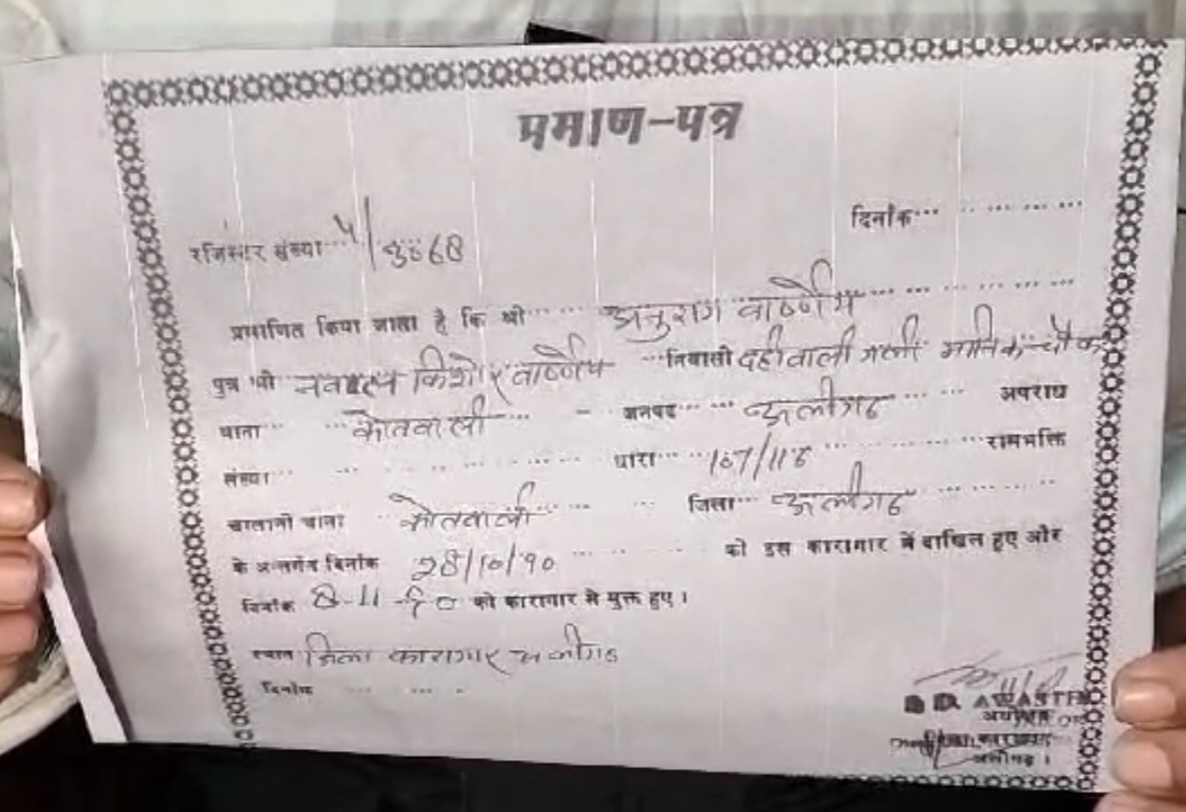 प्रमाण-पत्र
दिनांक
रजिस्टर संख्या 4/
प्रमाणित किया जाता है कि श्री अनुराग वार्ष्णेय
पुत्र श्री किशोर वार्ष्णेय निवासी दहीवाली गली मानिक चौक
थाना कोतवाली - जनपद अलीगढ़ अपराध
संख्या धारा 107/116 रामभक्ति
चालानी थाना कोतवाली जिला अलीगढ़
के अन्तर्गत दिनांक 28/10/90 को इस कारागार में दाखिल हुए और
दिनांक 8-11-90 को कारागार से मुक्त हुए।
स्थान जिला कारागार अलीगढ़
दिनांक
AWASTHI
अधीक्षक
कारागार
अलीगढ़।